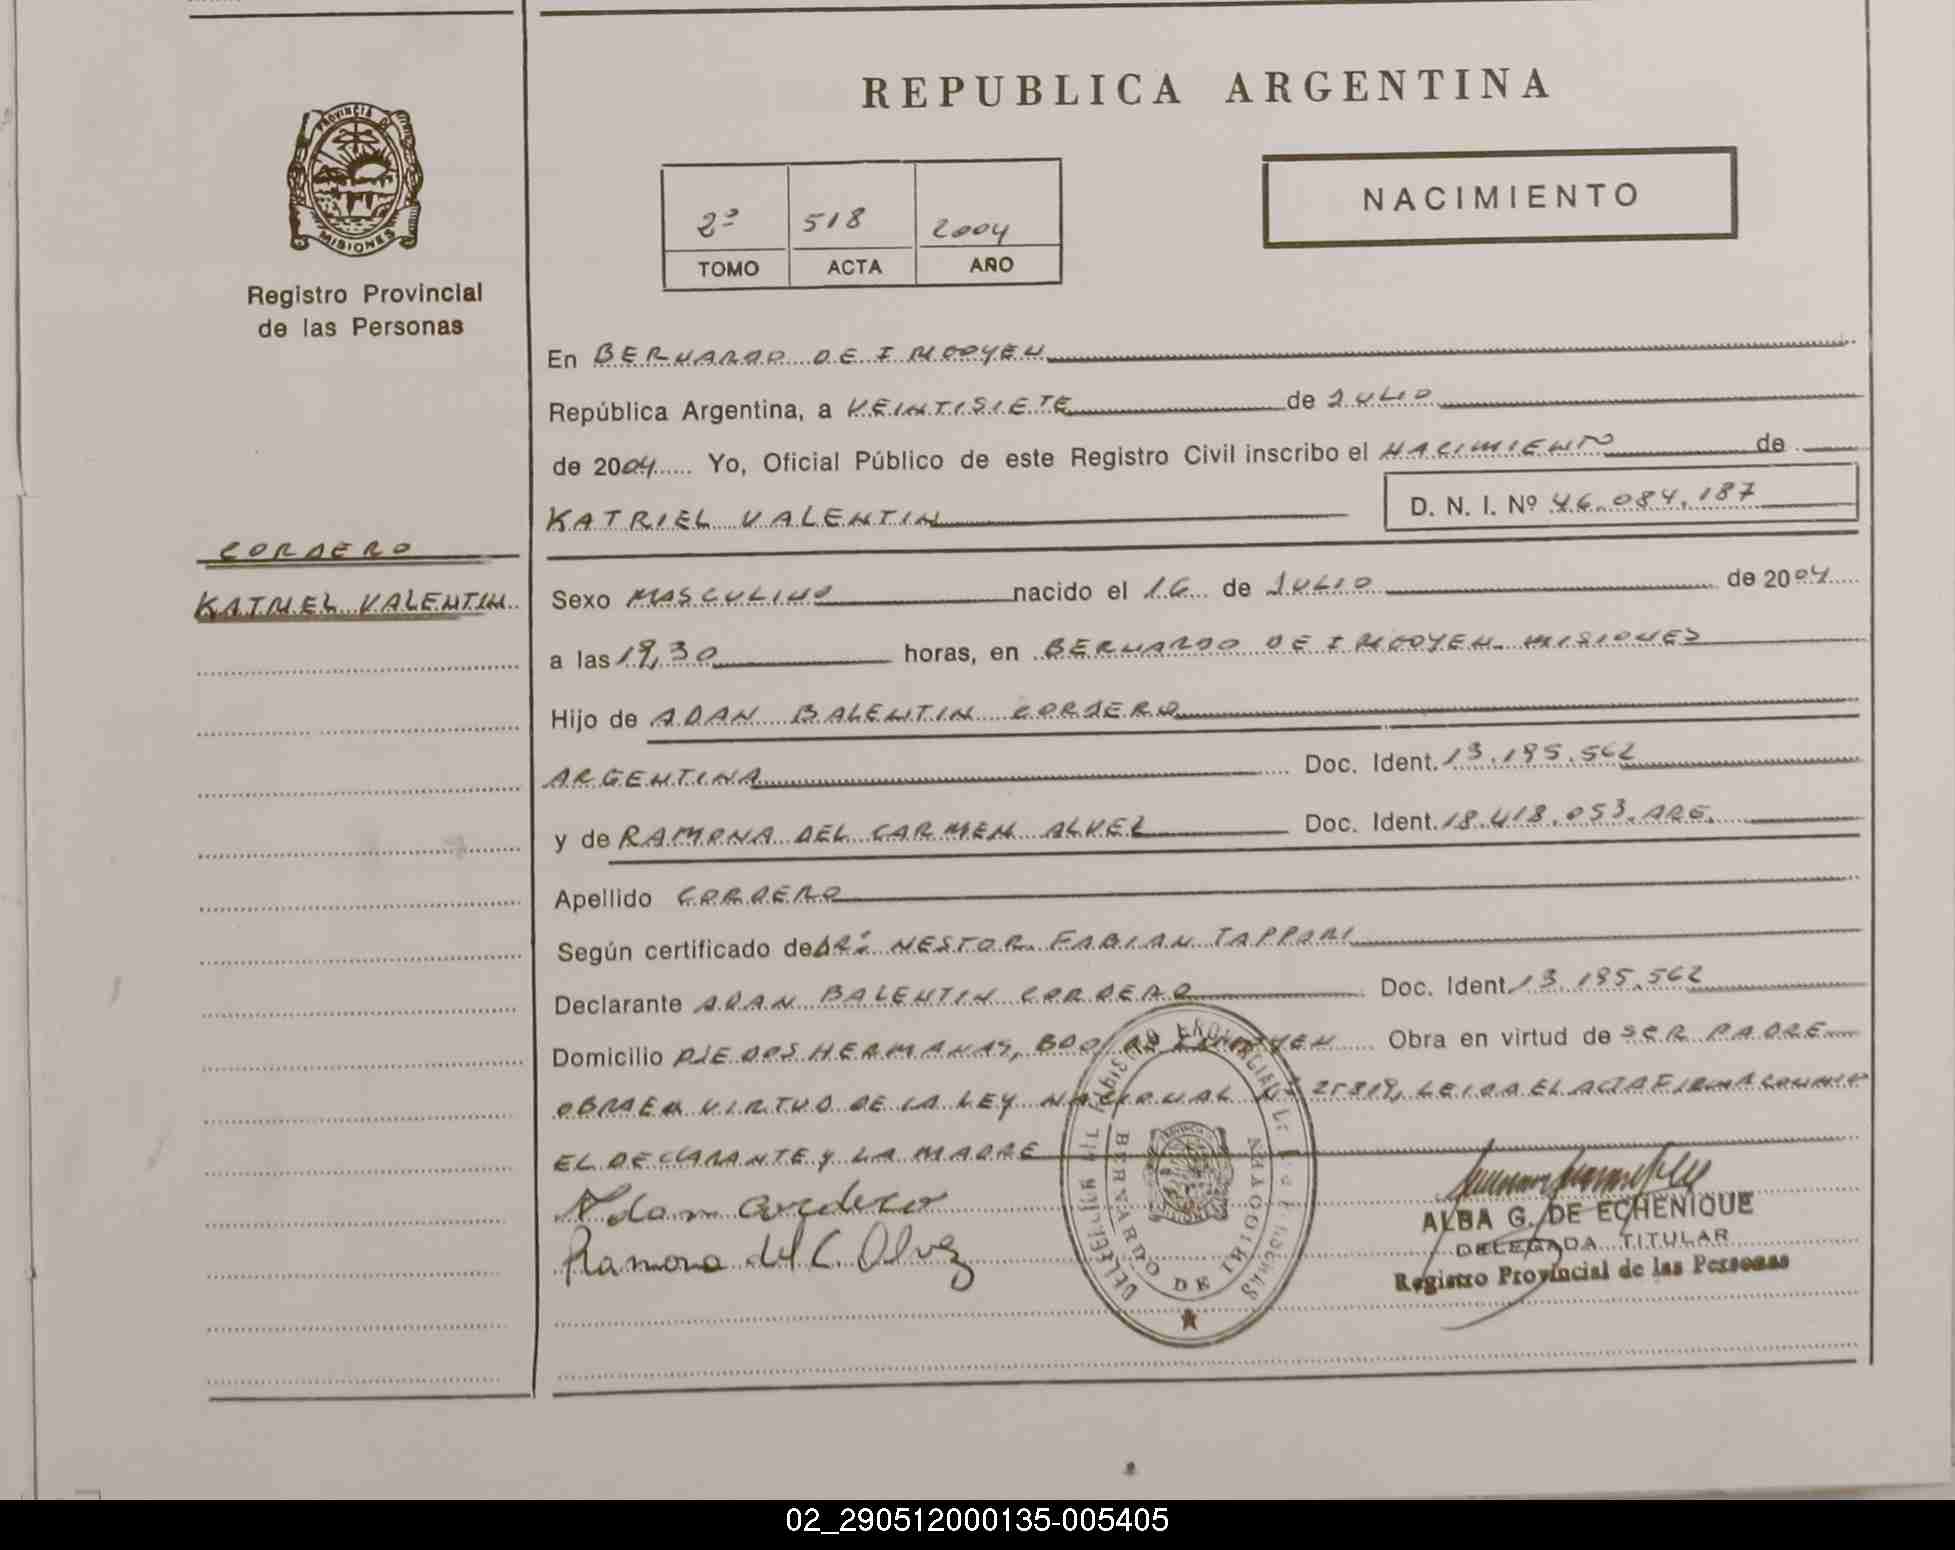 REPUBLICA ARGENTINA
PROVINCIA DE
MISIONES
Registro Provincial
de las Personas
2º 518 2004
TOMO ACTA AÑO
NACIMIENTO
CORDERO
KATRIEL VALENTIN
En BERNARDO DE IRIGOYEN
República Argentina, a VEINTISIETE de JULIO
de 2004 Yo, Oficial Público de este Registro Civil inscribo el NACIMIENTO de
KATRIEL VALENTIN D. N. I. Nº 46.084.187
Sexo MASCULINO nacido el 16 de JULIO de 2004
a las 19,30 horas, en BERNARDO DE IRIGOYEN. MISIONES
Hijo de ADAN BALENTIN CORDERO
ARGENTINA Doc. Ident. 13.195.562
y de RAMONA DEL CARMEN ALVEZ Doc. Ident. 18.418.053. ARG.
Apellido CORDERO
Según certificado de DR: NESTOR FABIAN TAPPARI
Declarante ADAN BALENTIN CORDERO Doc. Ident. 13.195.562
Domicilio PJE DOS HERMANAS, BDO DE IRIGOYEN Obra en virtud de SER PADRE
OBRA EN VIRTUD DE LA LEY NACIONAL Nº 25819, LEIDA EL ACTA FIRMA CONMIGO
EL DECLARANTE Y LA MADRE
Adan Cordero
Ramona del C. Alvez
REGISTRO PROVINCIAL DE LAS PERSONAS
BERNARDO DE IRIGOYEN
ALBA G. DE ECHENIQUE
DELEGADA TITULAR
Registro Provincial de las Personas
02_290512000135-005405